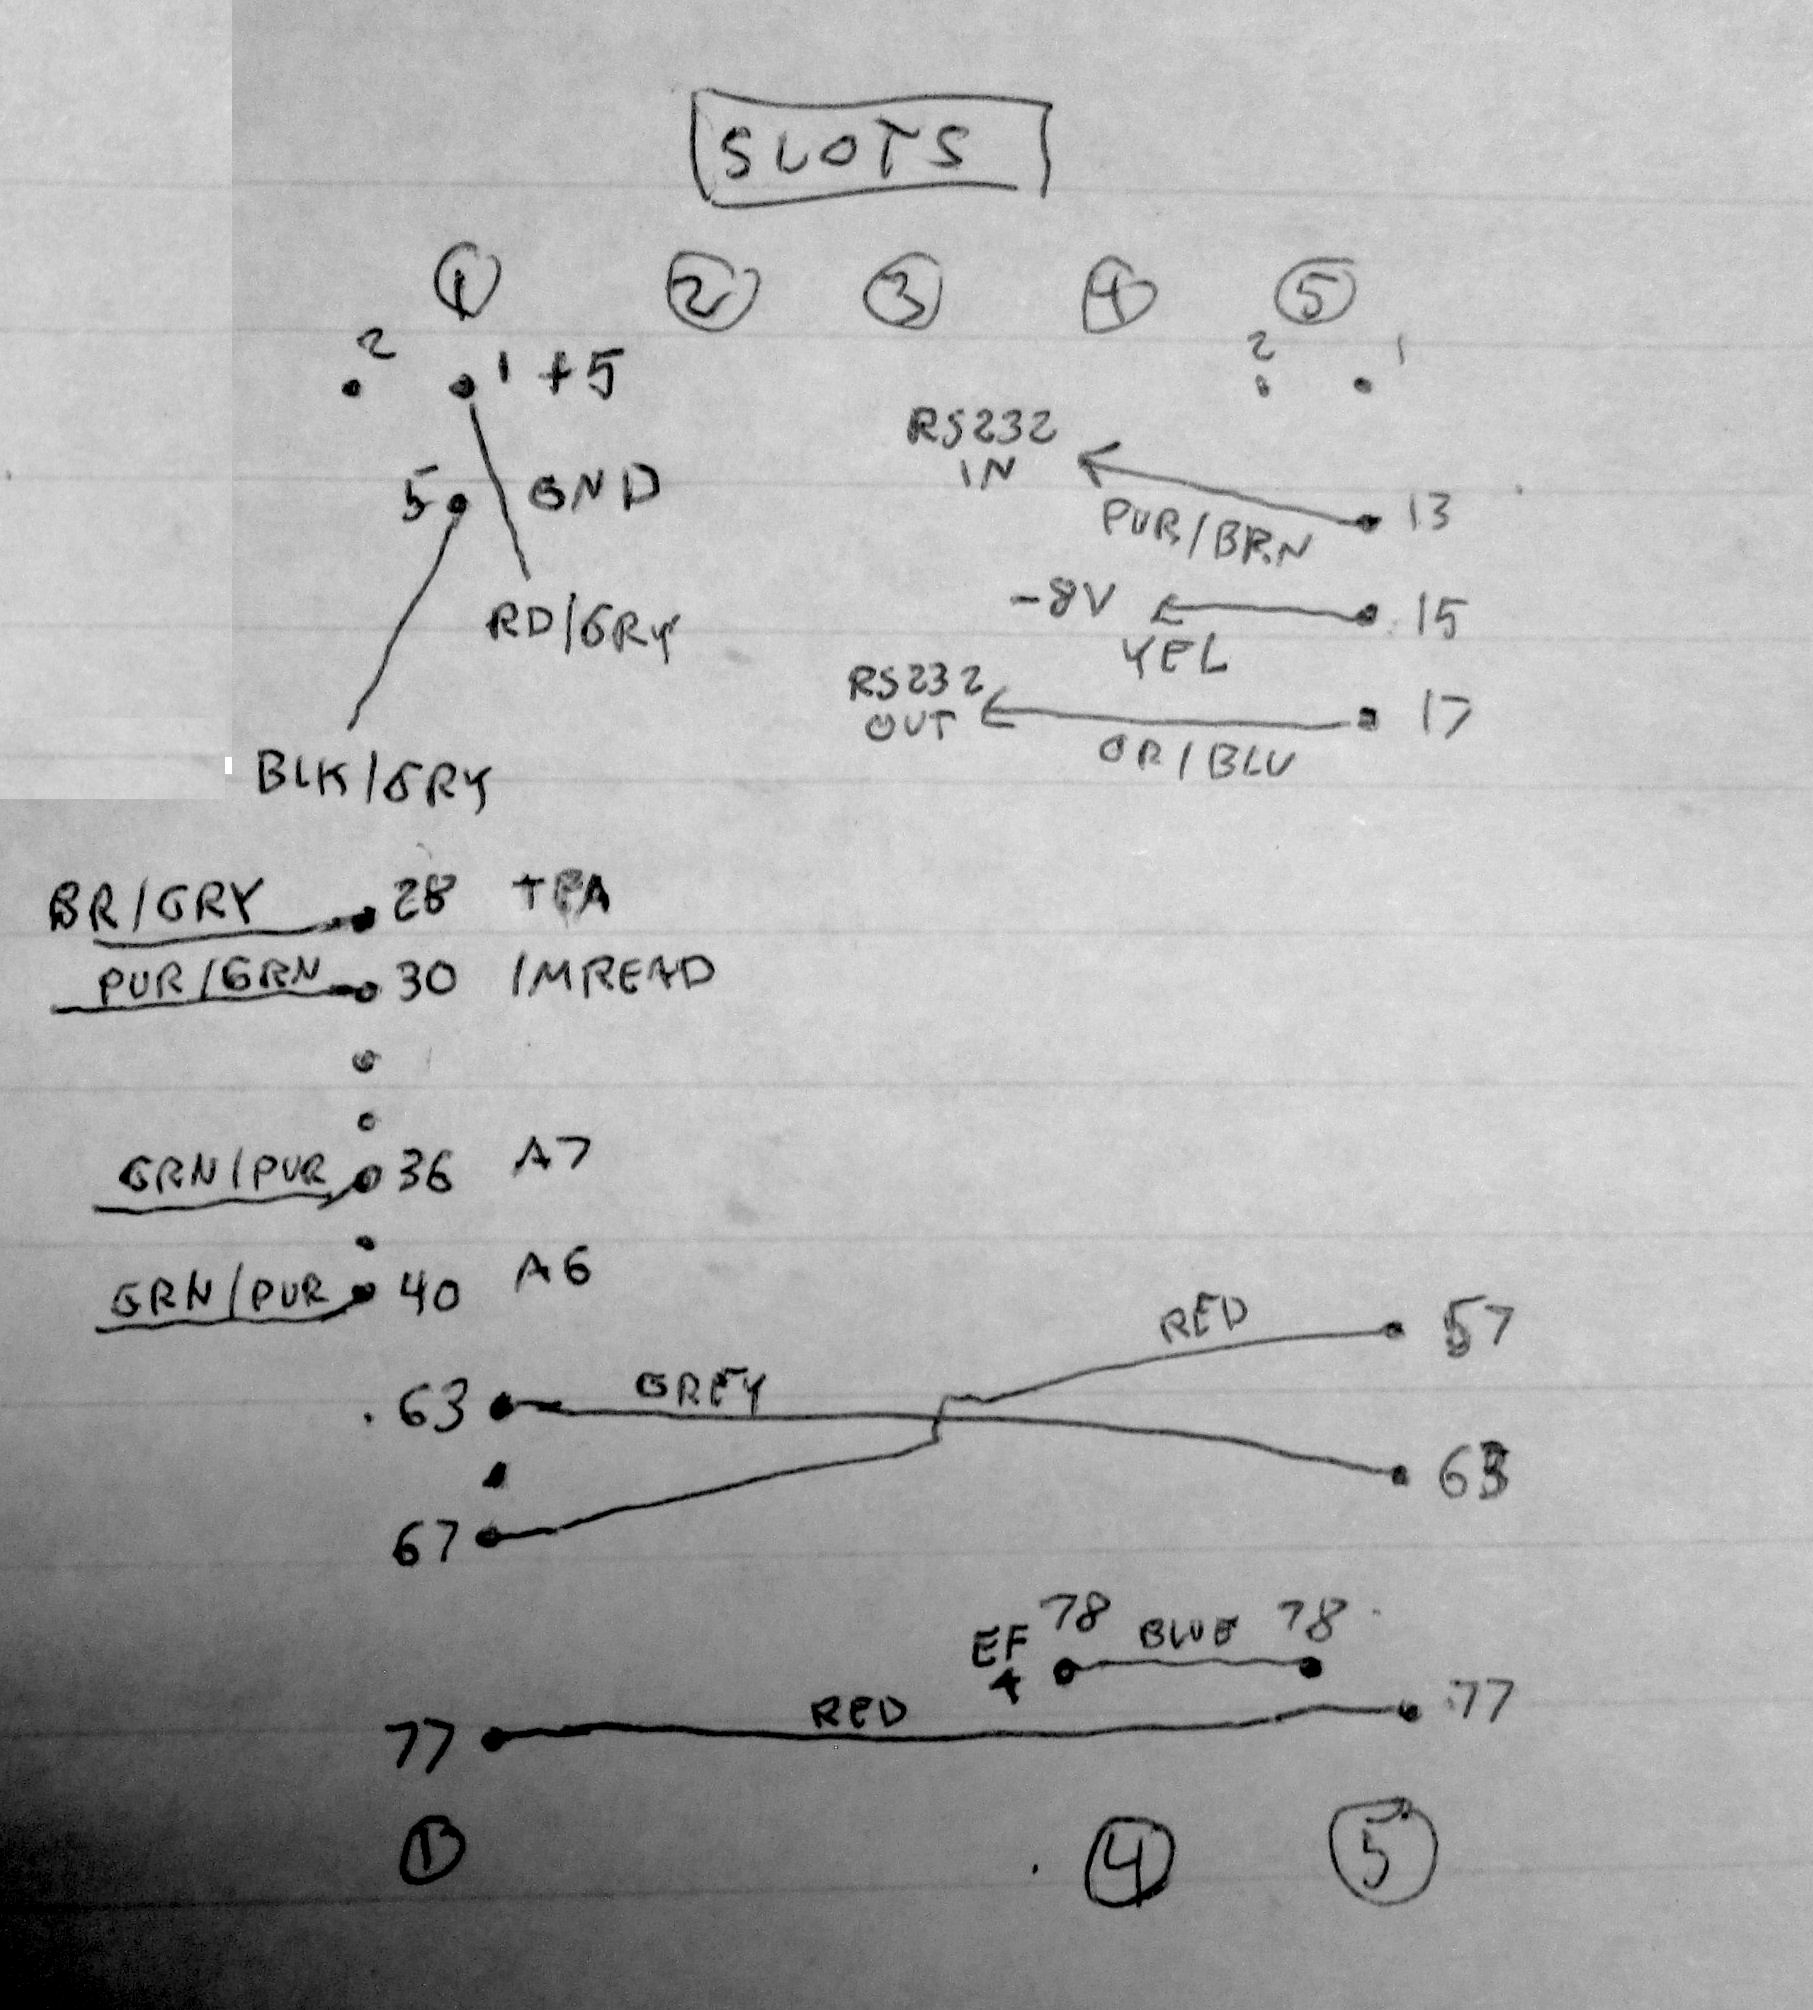 SLOTS
1 2 3 4 5
2 1 +5 2 1
RS232
IN
5 GND 13
PUR/BRN
-8V 15
RD/GRY YEL
RS232
OUT 17
OR/BLU
BLK/GRY
BR/GRY 28 TPA
PUR/GRN 30 /MREAD
GRN/PUR 36 A7
GRN/PUR 40 A6
RED 57
63 GREY 63
67
EF 78 BLUE 78
4
77 RED 77
1 4 5